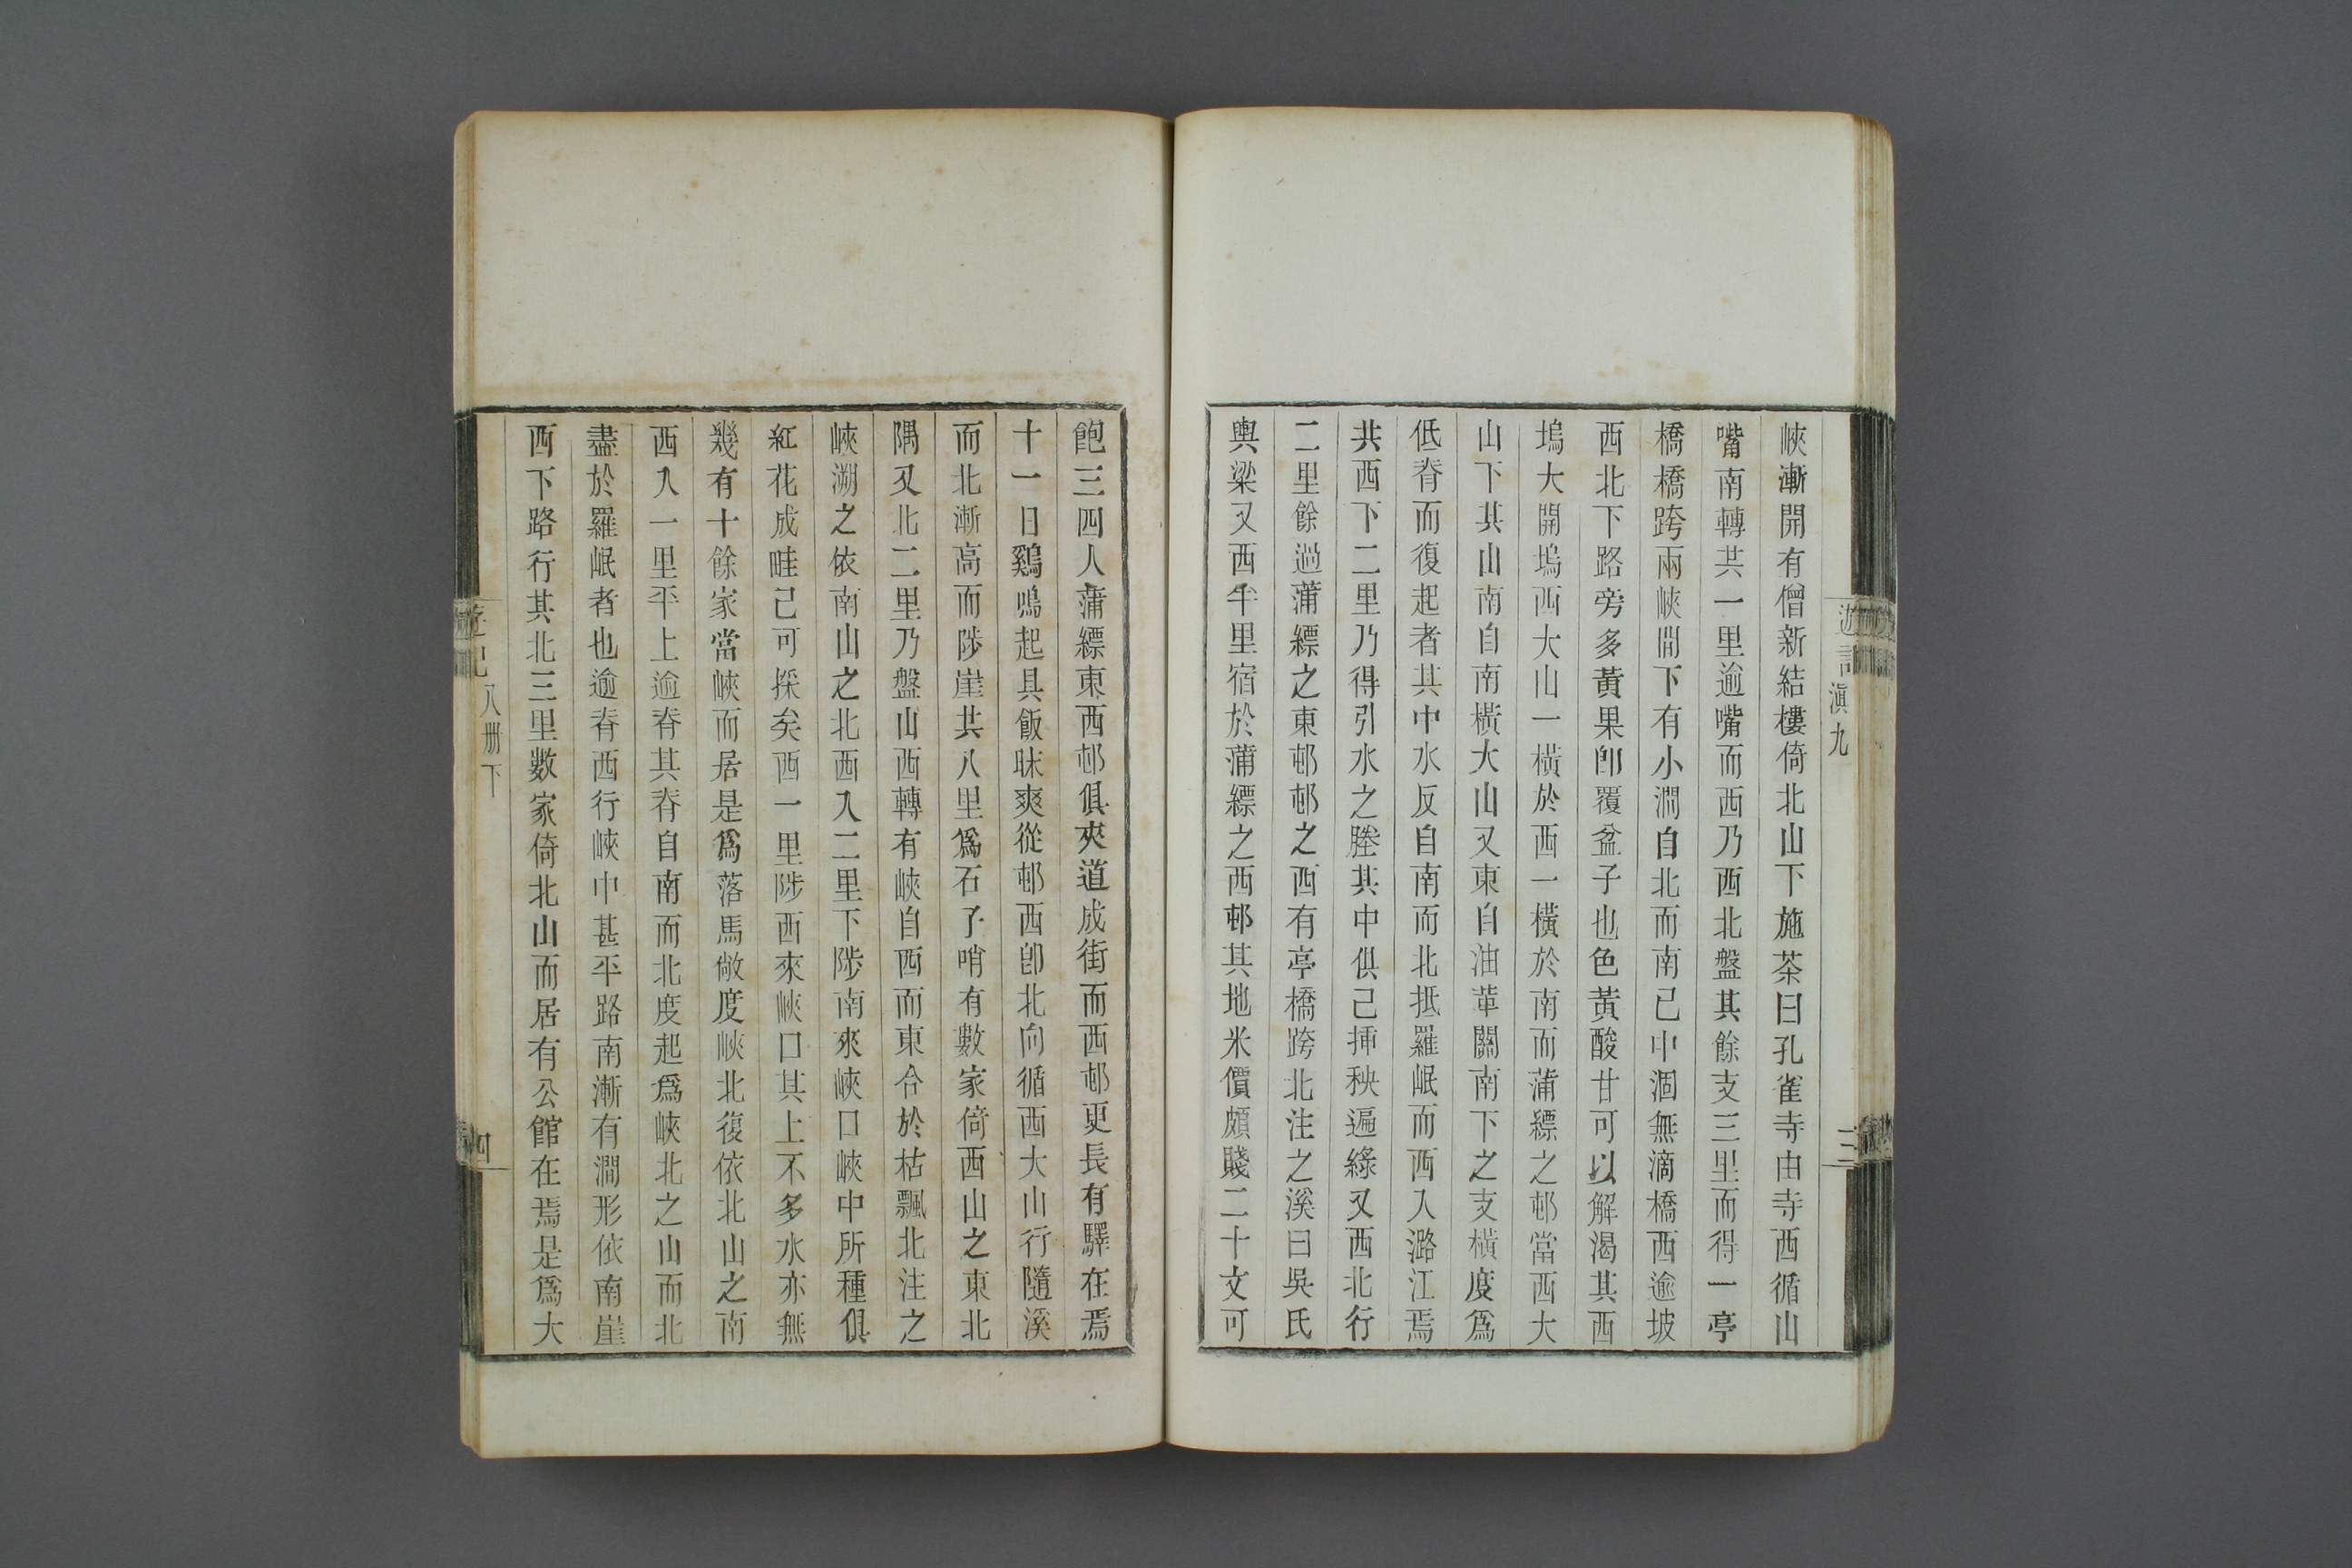 遊記滇九
三
峽漸開有僧新結樓倚北山下施茶曰孔雀寺由寺西循山
嘴南轉共一里逾嘴而西乃西北盤其餘支三里而得一亭
橋橋跨兩峽間下有小澗自北而南已中涸無滴橋西逾坡
西北下路旁多黃果卽覆盆子也色黃酸甘可以解渴其西
塢大開塢西大山一橫於西一橫於南而蒲縹之邨當西大
山下其山南自南橫大山又東自油葦關南下之支橫度爲
低脊而復起者其中水反自南而北抵羅岷而西入潞江焉
共西下二里乃得引水之塍其中俱已插秧遍綠又西北行
二里餘過蒲縹之東邨邨之西有亭橋跨北注之溪曰吳氏
輿梁又西半里宿於蒲縹之西邨其地米價頗賤二十文可
飽三四人蒲縹東西邨俱夾道成街而西邨更長有驛在焉
十一日鷄鳴起具飯昧爽從邨西卽北向循西大山行隨溪
而北漸高而陟崖共八里爲石子哨有數家倚西山之東北
隅又北二里乃盤山西轉有峽自西而東合於枯飄北注之
峽溯之依南山之北西入二里下陟南來峽口峽中所種俱
紅花成畦已可採矣西一里陟西來峽口其上不多水亦無
幾有十餘家當峽而居是爲落馬敞度峽北復依北山之南
西入一里平上逾脊其脊自南而北度起爲峽北之山而北
盡於羅岷者也逾脊西行峽中甚平路南漸有澗形依南崖
西下路行其北三里數家倚北山而居有公館在焉是爲大
八册下
四